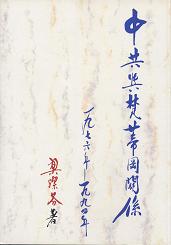 中共與梵蒂岡關係
一九七六年—一九九四年
著